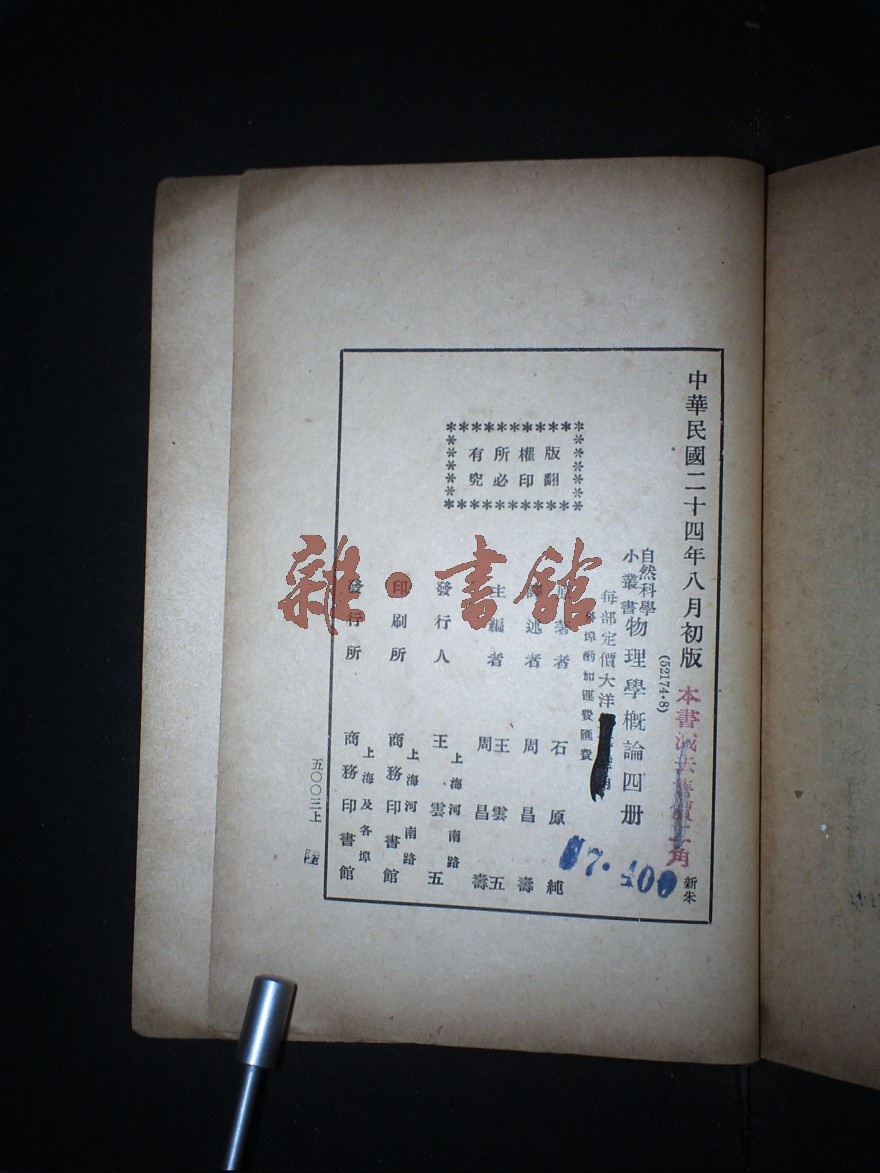 中華民國二十四年八月初版
(52174·8)
本書減去舊價二角
新朱
自然科學
小叢書
物理學概論四册
每部定價大洋
外埠酌加運費匯費
版權所有
翻印必究
原著者 石原純
譯述者 周昌壽
主編者 王雲五
周昌壽
發行人 王雲五
上海河南路
印刷所 商務印書館
上海河南路
發行所 商務印書館
上海及各埠
五〇〇三上
陸
雜·書館